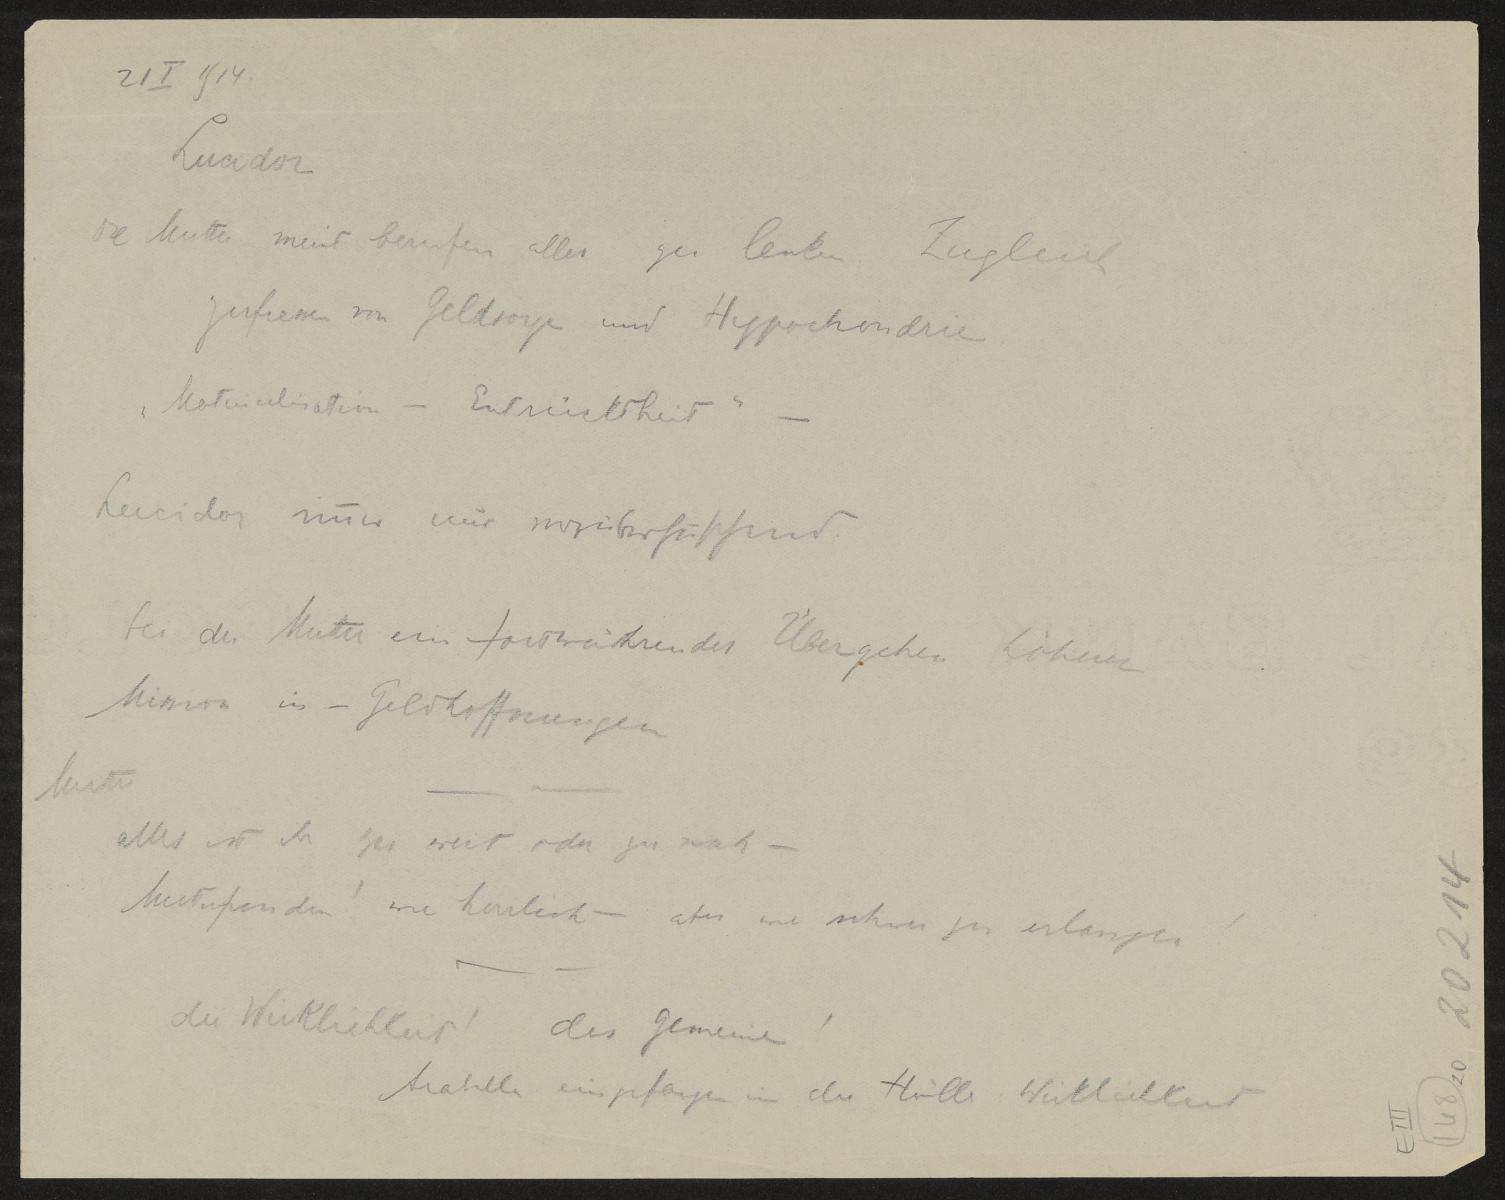 21 I 1914.
Lucidor
die Mutter meint berufen alles zu lenken. Zugleich
zerfressen von Geldsorgen und Hyppochondrie
„Materialisation – Entrücktheit“ –
Lucidor immer nur vorüberhuschend.
bei der Mutter ein fortwährendes Übergehen höherer
Mission in – Geldhoffnungen
Mutter
alles ist ihr zu weit oder zu nah –
wie herrlich – aber wie schwer zu erlangen!
die Wirklichkeit! das Gemeine!
Arabella eingefangen in der Hülle Wirklichkeit
E III 148/20 20214